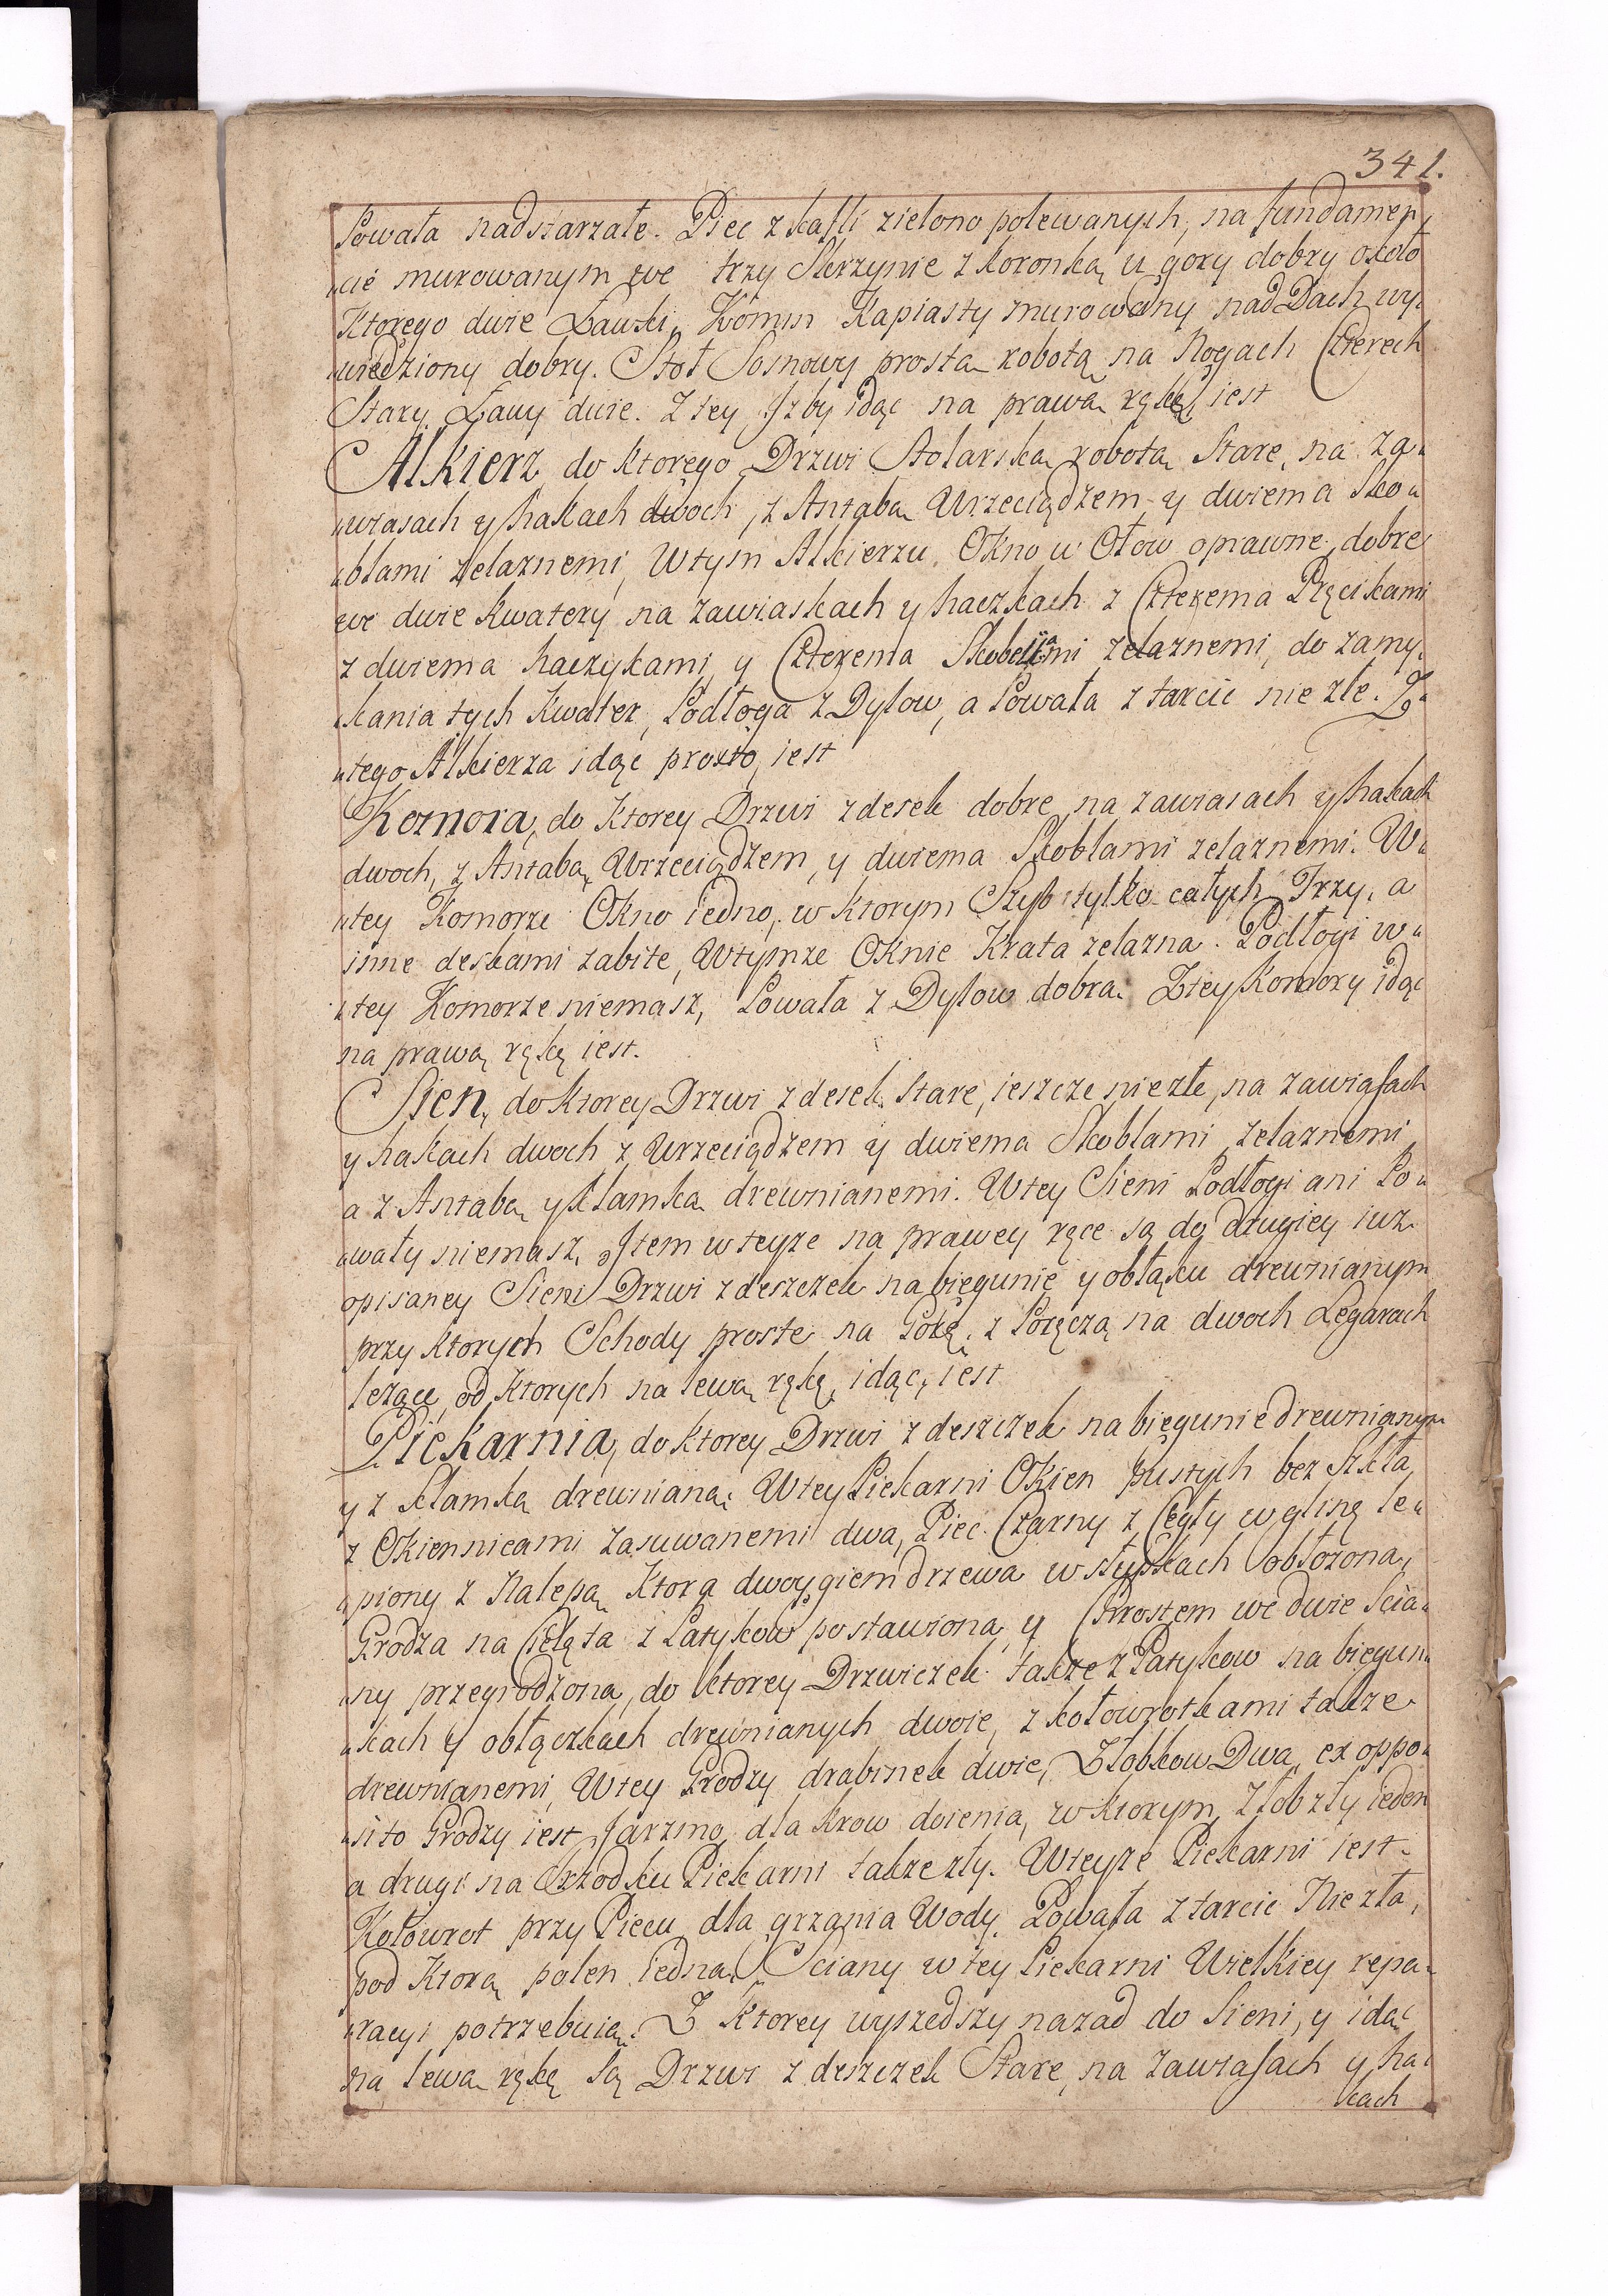 341.
Powała nadstarzałe. Piec z kafli zielono polewanych, na fundamen„
„cie murowanym we trzy Skrzynie z koronką u gory dobry około
Ktorego dwie Ławki, Komin Kapiasty murowany nad Dach wy„
„wiedziony dobry. Stoł Sosnowy prostą robotą na Nogach Czterech
Stary. Ławy dwie. Z tey Izby idąc na prawą rękę, iest
Alkierz do ktorego Drzwi Stolarską robotą Stare, na za„
„wiasach y hakach dwoch, z Antabą Wrzeciądzem y dwiema Sko„
„blami żelaznemi, W tym Alkierzu Okno w Ołow oprawne, dobre
we dwie kwatery na zawiaskach y haczkach z Czterema Pręcikami
z dwiema haczykami y Czterema Skoblijami żelaznemi, do zamy„
„kania tych Kwater, Podłoga z Dylow, a Powała z tarcic nie złe. Z„
„tego Alkierza idąc prosto, iest
Komora, do Ktorey Drzwi z desek dobre na zawiasach y hakach
dwoch, z Antabą, Wrzeciądzem, y dwiema Skoblami żelaznemi. W„
„tey Komorze Okno iedno, w ktorym Szyb tylko całych Trzy, a
inne deskami zabite, W tymże Oknie Krata żelazna. Podłogi w„
„tey Komorze niemasz, Powała z Dylow dobra. Z tey Komory idąc
na prawą rękę iest.
Sien, do Ktorey Drzwi z desek Stare, ieszcze nie złe, na zawiasach
y hakach dwoch z Wrzeciądzem y dwiema Skoblami żelaznemi,
a z Antabą y klamką drewnianemi. W tey Sieni Podłogi ani Po„
„wały niemasz, Item w teyże na prawey ręce są do drugiey iuż
opisaney Sieni Drzwi z deszczek na biegunie y obłąku drewnianym
przy ktorych Schody proste na Gorę, z Poręczą na dwoch Legarach
leżące, od Ktorych na lewą rękę, idąc, iest
Piekarnia, do Ktorey Drzwi z deszczek na biegunie drewnianym
y z klamką drewnianą. W tey Piekarni Okien pustych bez Szkła
z Okiennicami zasuwanemi dwa, Piec Czarny z Cegły w glinę le„
„piony z Nalepą Ktora dwoygiem drzewa w słupkach obłożona,
Grodza na Cielęta z Patykow postawiona, y Chrostem we dwie Scia„
„ny przegrodzona, do ktorey Drzwiczek także z Patykow na biegun„
„kach y obłączkach drewnianych dwoie, z kołowrotkami także
drewnianemi, W tey Grodzy drabinek dwie, Złobkow Dwa, ex oppo„
„sito Grodzy iest Jarzmo dla krow doienia, w ktorym Złob zły ieden
a drugi na Srzodku Piekarni także zły. W teyże Piekarni iest
Kołowrot przy Piecu dla grzania Wody. Powała z tarcic Nie zła,
pod Ktorą polen iedna. Sciany w tey Piekarni Wielkiey repa„
„racyi potrzebuią. Z Ktorey wyszedszy nazad do Sieni, y idąc
na lewą rękę są Drzwi z deszczek Stare, na zawiasach y ha„
kach